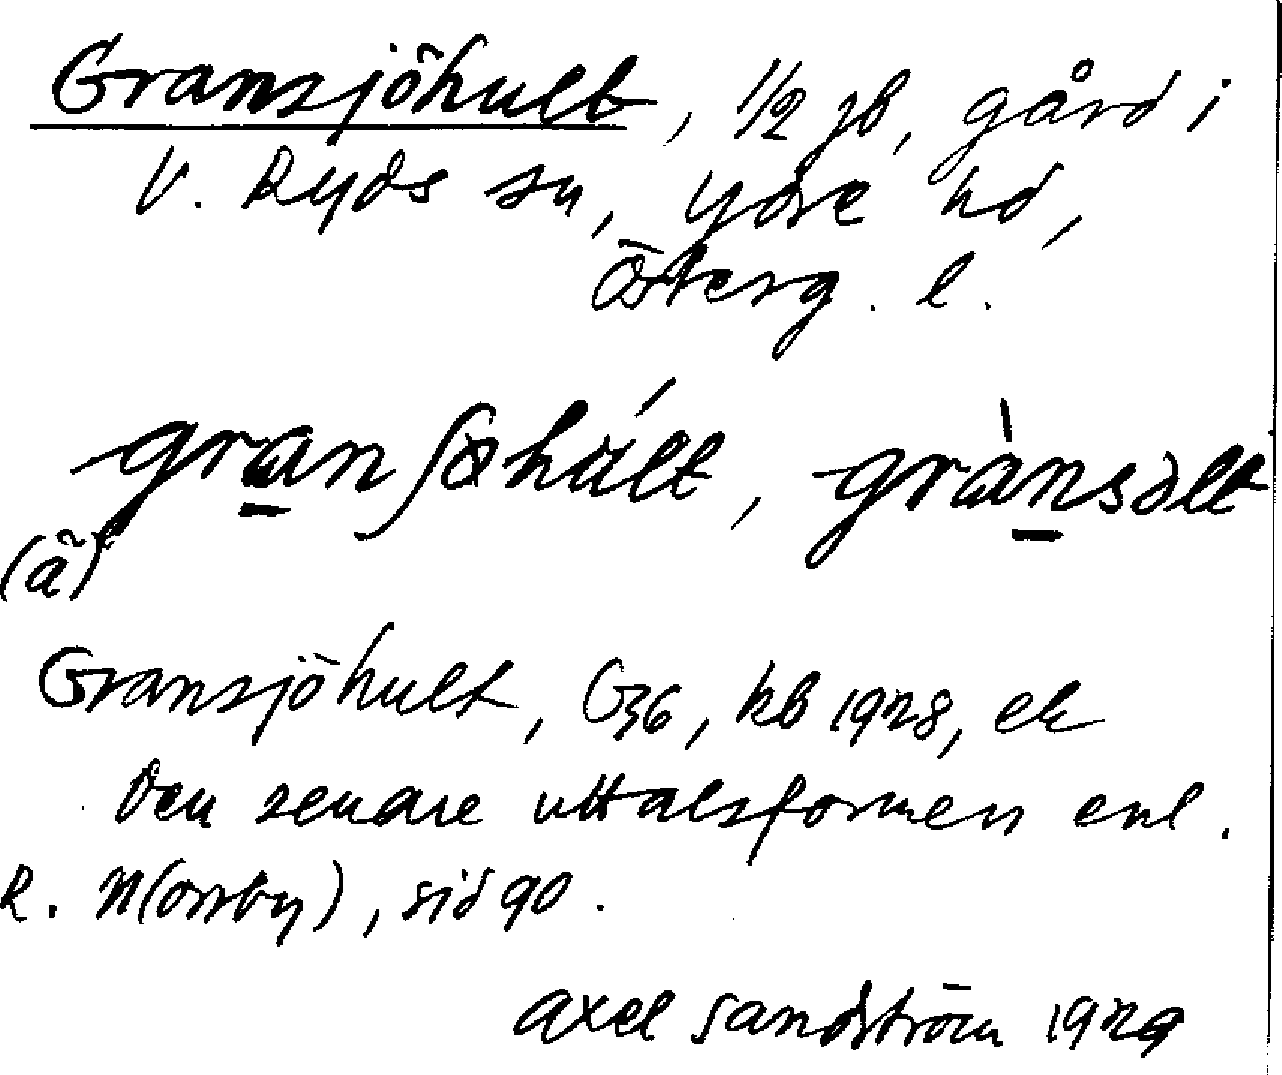 Gransjöhult, 1/2 jb, gård i
V. Ryds sn, Ydre hd,
Österg. l.
granʃöhúlt, grànsòlt
(ã)
Gransjöhult, G36, kb 1928, ek
Den senare uttalsformen enl.
R. N(orrby), sid 90.
Axel Sandström 1929